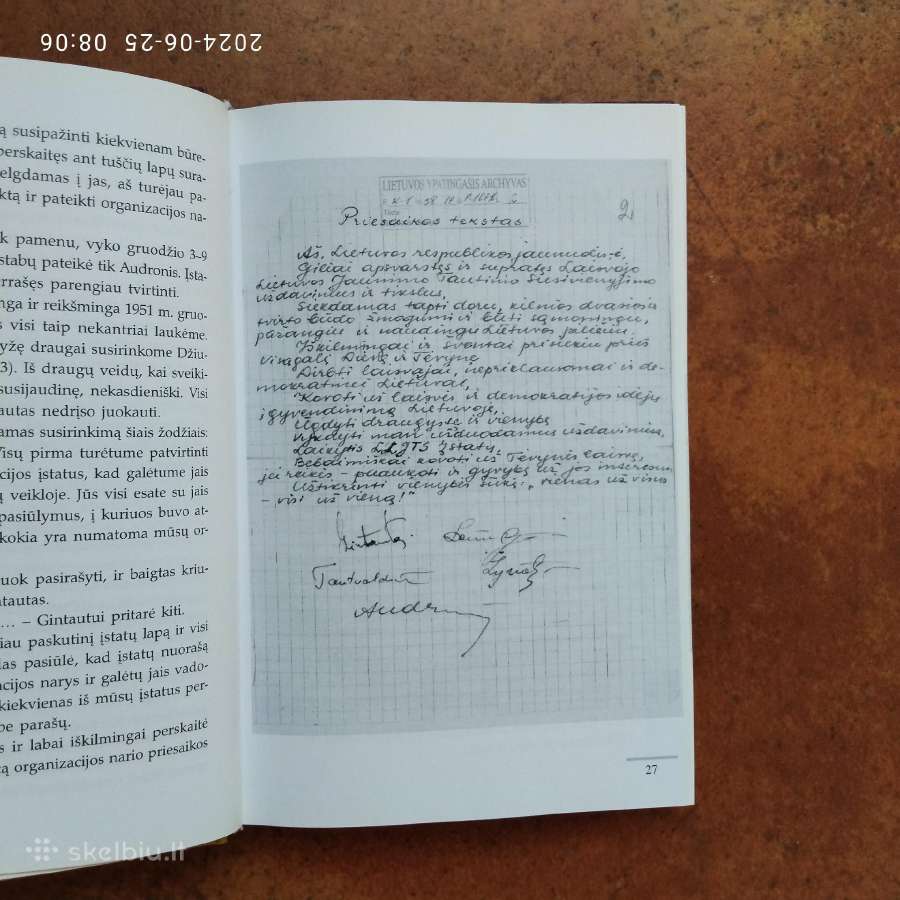 2024-06-25 08:06
ą susipažinti kiekvienam būre-
perskaitęs ant tuščių lapų sura-
elgdamas į jas, aš turėjau pa-
ktą ir pateikti organizacijos na-
k pamenu, vyko gruodžio 3–9
stabų pateikė tik Audronis. Ista-
rrašęs parengiau tvirtinti.
nga ir reikšminga 1951 m. gruo-
s visi taip nekantriai laukėme.
yžę draugai susirinkome Džiu-
3). Iš draugų veidų, kai sveiki-
susijaudinę, nekasdieniški. Visi
autas nedrįso juokauti.
amas susirinkimą šiais žodžiais:
Visų pirma turėtume patvirtinti
cijos įstatus, kad galėtume jais
ų veikloje. Jūs visi esate su jais
pasiūlymus, į kuriuos buvo at-
kokia yra numatoma mūsų or-
uok pasirašyti, ir baigtas kriu-
ntautas.
… – Gintautui pritarė kiti.
iau paskutinį įstatų lapą ir visi
das pasiūlė, kad įstatų nuorašą
acijos narys ir galėtų jais vado-
kiekvienas iš mūsų įstatus per-
be parašų.
s ir labai iškilmingai perskaitė
ą organizacijos nario priesaikos
LIETUVOS YPATINGASIS ARCHYVAS
Priesaikos tekstas
Aš, Lietuvos respublikos jaunuolis-ė,
Giliai apsvarstęs ir supratęs Laisvojo
Lietuvos Jaunimo Tautinio Susivienijimo
uždavinius ir tikslus,
Siekdamas tapti doru, kilnios dvasios
tvirto būdo žmogumi ir būti sąmoningu,
pažangiu ir naudingu Lietuvos piliečiu.
Iškilmingai ir šventai prisiekiu prieš
Visagalį Dievą ir Tėvynę
Dirbti laisvajai, nepriklausomai ir de-
mokratinei Lietuvai,
Kovoti už laisvės ir demokratijos idėjų
įgyvendinimą Lietuvoje,
Ugdyti draugystę ir vienybę
Vykdyti man užduodamus uždavinius,
Laikytis LLJTS Įstatų,
Bebaimiškai kovoti už Tėvynės laisvę,
jei reikės – paaukoti ir gyvybę už jos interesus
Užtikrinti vienybės šūkį: „vienas už visus
– visi už vieną!"
Gintautas
Tautvaldas
27
skelbiu.lt